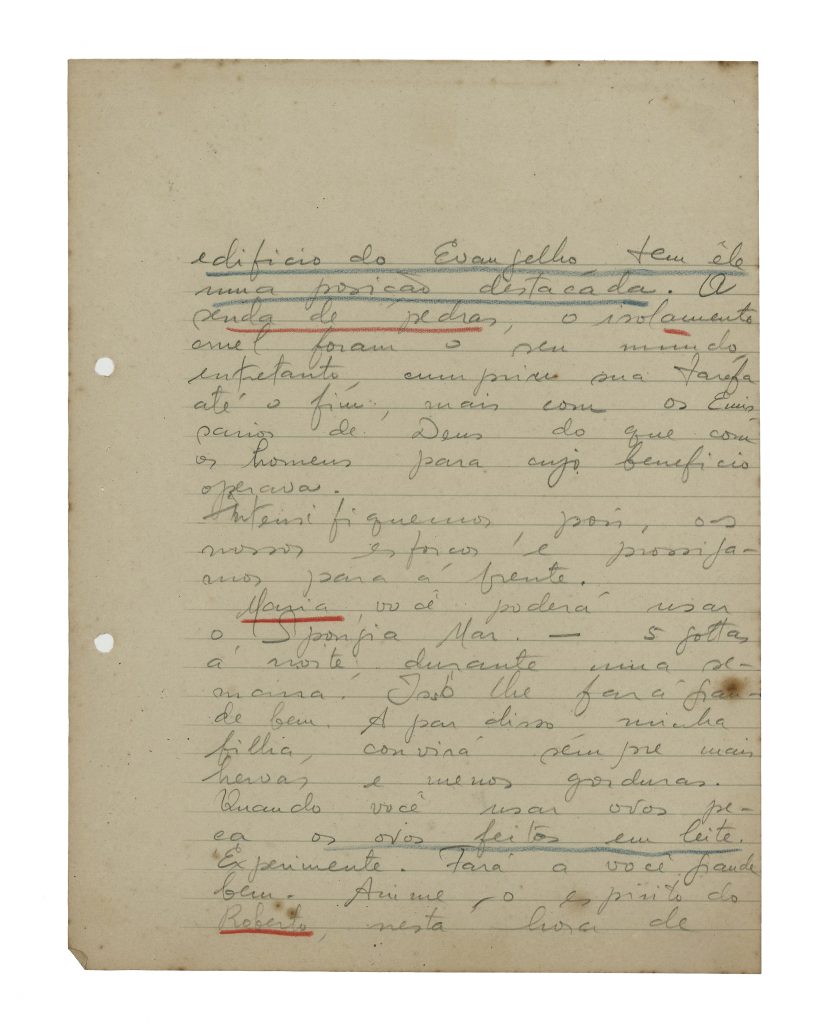 edificio do Evangelho tem êle
uma posição destacada. A
senda de pedras, o isolamento
cruel foram o seu mundo,
entretanto, cumpriu sua tarefa
até o fim, mais com os Emis
sarios de Deus do que com
os homens para cujo beneficio
operava.
Intensifiquemos, pois, os
nossos esforços e prossiga-
mos para a frente.
Maria, você poderá usar
o Spongia Mar. — 5 gottas
á noite, durante uma se-
mana. Isso lhe fará gran-
de bem. A par disso minha
filha, convirá sempre mais
hervas e menos gorduras.
Quando você usar ovos pe-
ça os ovos feitos em leite.
Experimente. Fará a você grande
bem. Anime-o espirito do
Roberto, nesta hora de